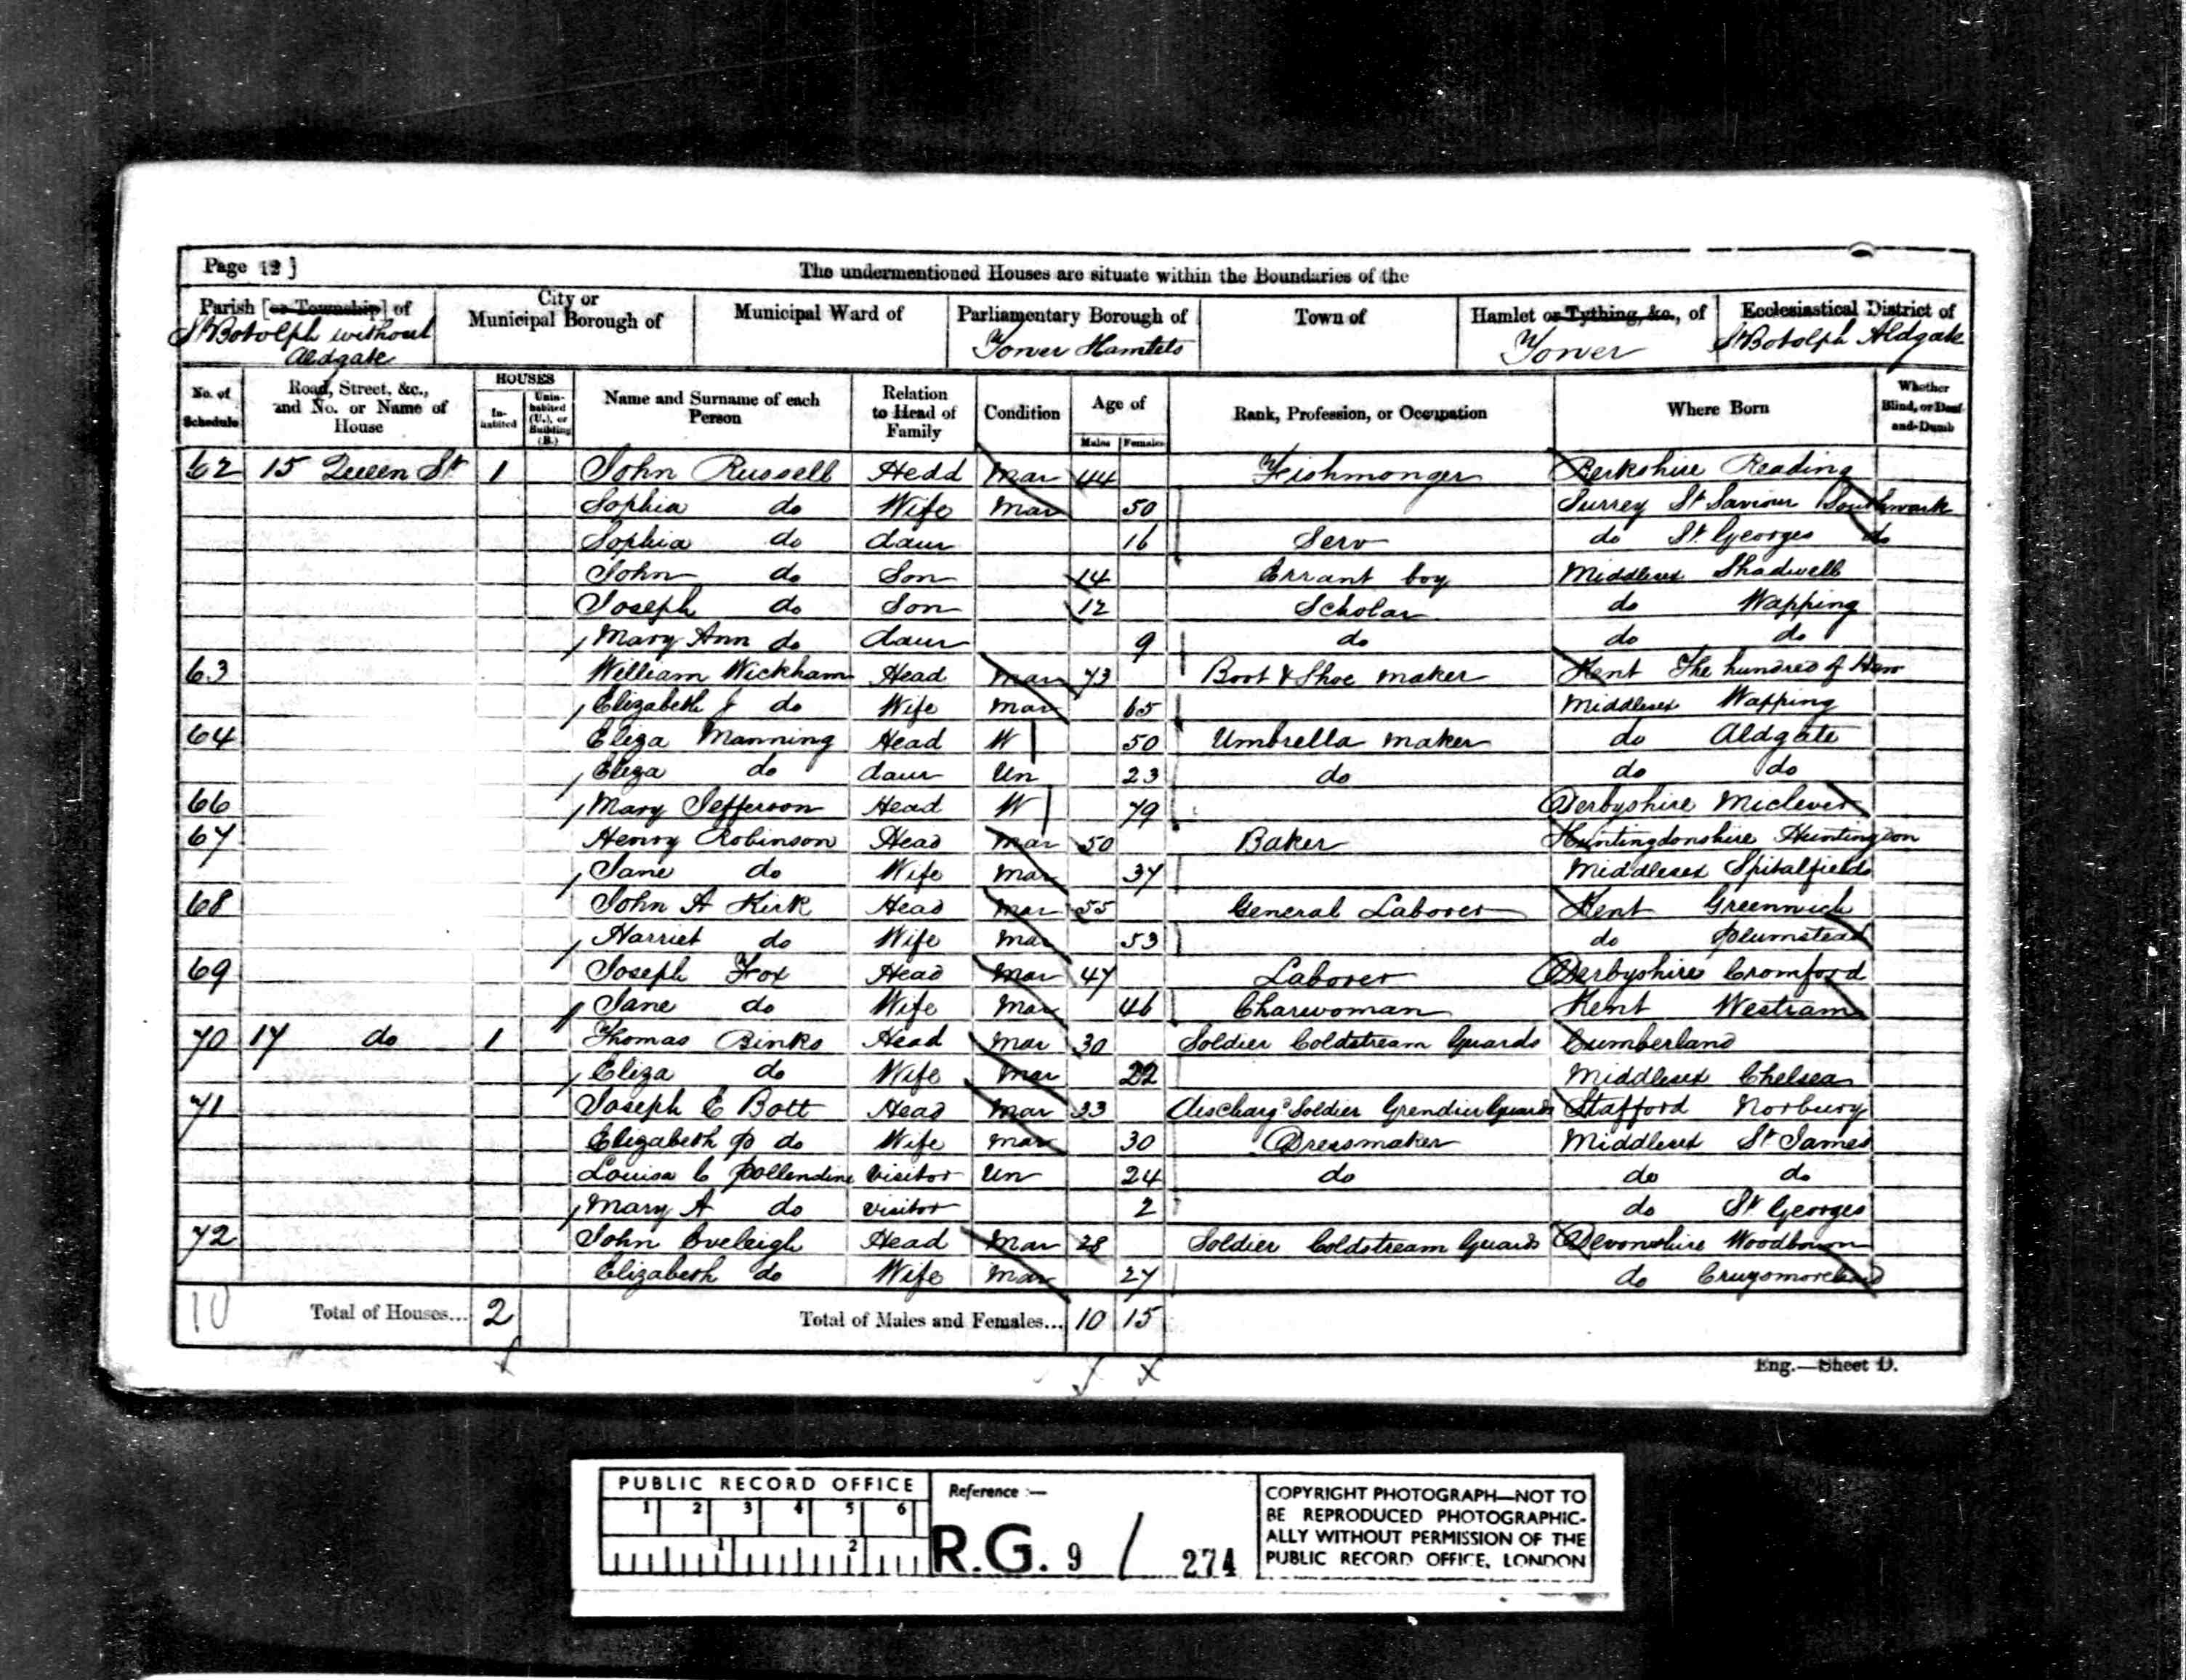 Page 12]
The undermentioned Houses are situate within the Boundaries of the
Parish [or Township] of
St Botolph without
Aldgate
City or
Municipal Borough of
Municipal Ward of
Parliamentary Borough of
Tower Hamlets
Town of
Hamlet or Tything, &c., of
Tower
Ecclesiastical District of
St Botolph Aldgate
No. of Schedule
Road, Street, &c., and No. or Name of House
HOUSES
In-habited
Unin-habited (U.), or Building (B.)
Name and Surname of each Person
Relation to Head of Family
Condition
Age of
Males
Females
Rank, Profession, or Occupation
Where Born
Whether Blind, or Deaf-and-Dumb
62 15 Queen St 1 John Russell Hedd Mar 44 Fishmonger Berkshire Reading
Sophia do Wife Mar 50 Surrey St Saviour Southwark
Sophia do daur 16 Serv do St Georges do
John do Son 14 Errant boy Middlesex Shadwell
Joseph do Son 12 Scholar do Wapping
Mary Ann do daur 9 do do do
63 William Wickham Head Mar 73 Boot & Shoe maker Kent The hundred of Hoo
Elizabeth J do Wife Mar 65 Middlesex Wapping
64 Eliza Manning Head W 50 Umbrella maker do Aldgate
Eliza do daur Un 23 do do do
66 Mary Jefferson Head W 79 Derbyshire
67 Henry Robinson Head Mar 50 Baker Huntingdonshire Huntingdon
Jane do Wife Mar 37 Middlesex Spitalfields
68 John A Kirk Head Mar 55 General Laborer Kent Greenwich
Harriet do Wife Mar 53 do Plumstead
69 Joseph Fox Head Mar 47 Laborer Derbyshire Cromford
Jane do Wife Mar 46 Charwoman Kent Westram
70 17 do 1 Thomas Binks Head Mar 30 Soldier Coldstream Guards Cumberland
Eliza do Wife Mar 22 Middlesex Chelsea
71 Joseph E Bott Head Mar 33 discharg'd Soldier Grendier Guards Stafford Norbury
Elizabeth P do Wife Mar 30 Dressmaker Middlesex St James
Louisa C Pollendine visitor Un 24 do do do
Mary A do visitor 2 do St Georges
72 John Eveleigh Head Mar 28 Soldier Coldstream Guards Devonshire
Elizabeth do Wife Mar 27 do
10 Total of Houses... 2 Total of Males and Females... 10 15
Eng.—Sheet D.
PUBLIC RECORD OFFICE
1 2 3 4 5 6
1 2
Reference :—
R.G. 9 / 274
COPYRIGHT PHOTOGRAPH—NOT TO
BE REPRODUCED PHOTOGRAPHIC-
ALLY WITHOUT PERMISSION OF THE
PUBLIC RECORD OFFICE, LONDON